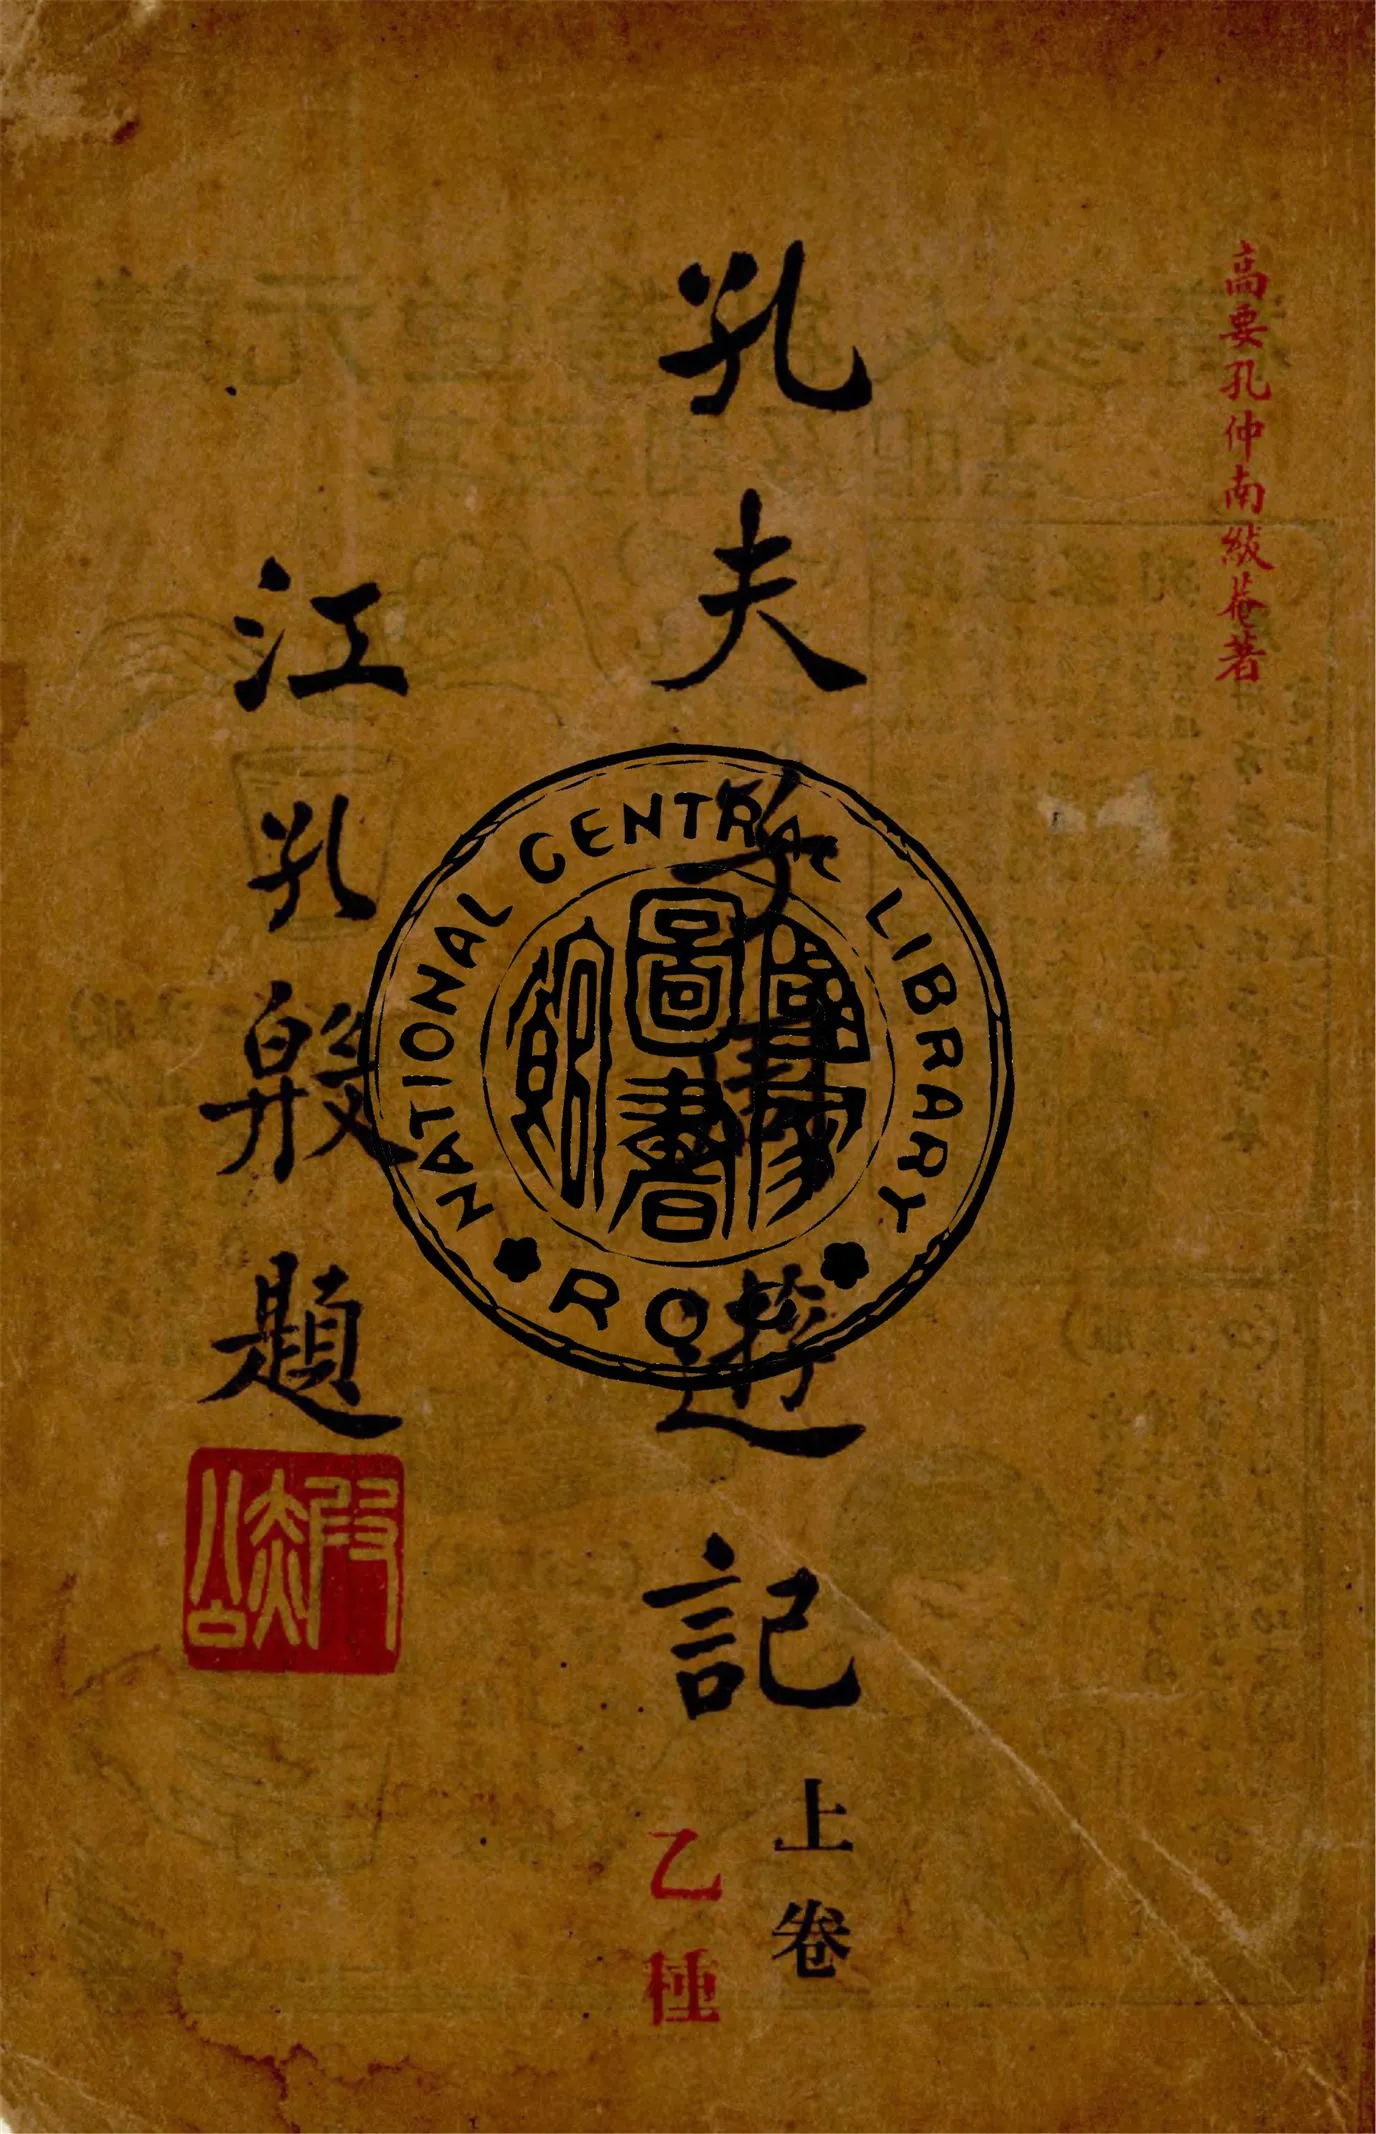 高要孔仲南紱菴著
孔夫子遊記
上卷
乙種
江孔殷題
NATIONAL CENTRAL LIBRARY
國家圖書館
ROC